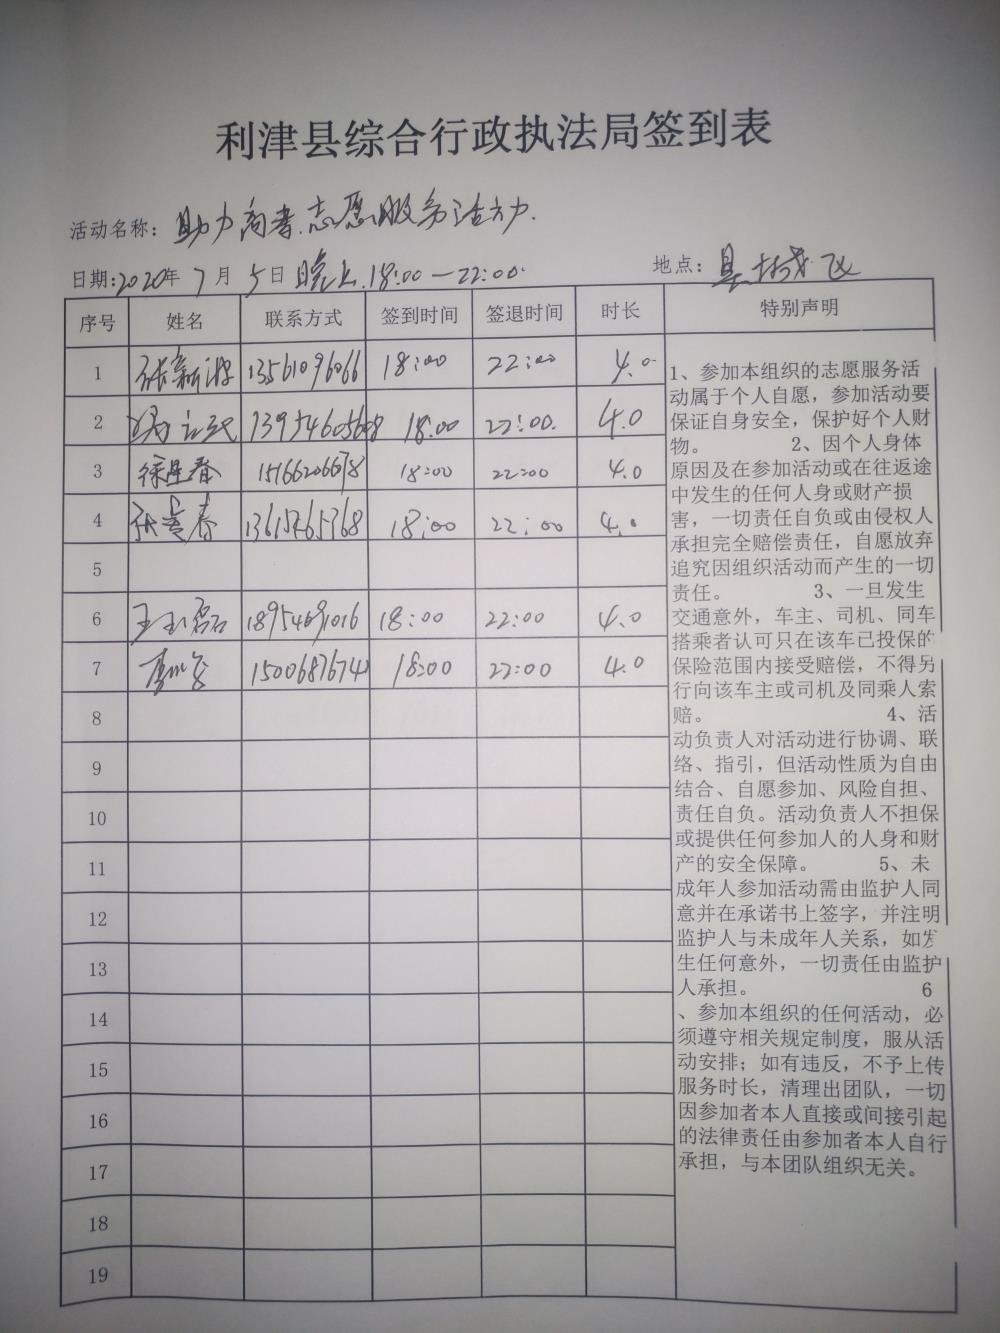 利津县综合行政执法局签到表
活动名称：助力高考.志愿服务活动.
日期:2020年 7 月 5 日 晚上 18:00—22:00. 地点：县城
序号 姓名 联系方式 签到时间 签退时间 时长 特别声明
1 13561096066 18:00 22:00 4.0
2 13954605608 18:00 22:00. 4.0
3 15166206678 18:00 22:00 4.0
4 张 春 13615465768 18:00 22:00 4.0
5
6 王玉磊 18954691016 18:00 22:00 4.0
7 15006876740 18:00 22:00 4.0
8
9
10
11
12
13
14
15
16
17
18
19
1、参加本组织的志愿服务活
动属于个人自愿，参加活动要
保证自身安全，保护好个人财
物。 2、因个人身体
原因及在参加活动或在往返途
中发生的任何人身或财产损
害，一切责任自负或由侵权人
承担完全赔偿责任，自愿放弃
追究因组织活动而产生的一切
责任。 3、一旦发生
交通意外，车主、司机、同车
搭乘者认可只在该车已投保的
保险范围内接受赔偿，不得另
行向该车主或司机及同乘人索
赔。 4、活
动负责人对活动进行协调、联
络、指引，但活动性质为自由
结合、自愿参加、风险自担、
责任自负。活动负责人不担保
或提供任何参加人的人身和财
产的安全保障。 5、未
成年人参加活动需由监护人同
意并在承诺书上签字，并注明
监护人与未成年人关系，如发
生任何意外，一切责任由监护
人承担。 6
、参加本组织的任何活动，必
须遵守相关规定制度，服从活
动安排；如有违反，不予上传
服务时长，清理出团队，一切
因参加者本人直接或间接引起
的法律责任由参加者本人自行
承担，与本团队组织无关。